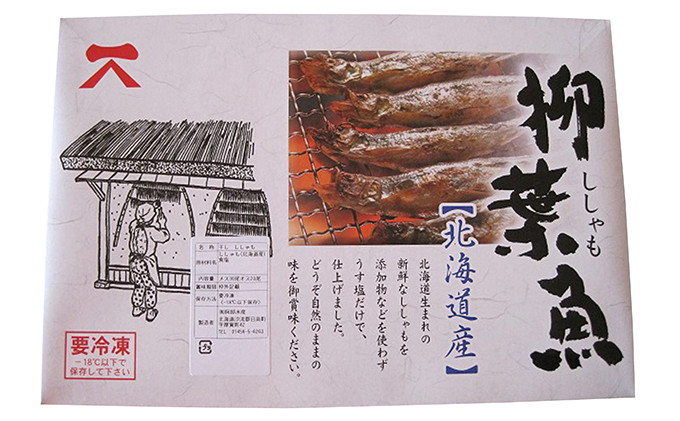 柳葉魚
ししゃも
【北海道産】
北海道生まれの
新鮮なししゃもを
添加物などを使わず
うす塩だけで、
仕上げました。
どうぞ自然のままの
味を御賞味ください。
名称 干し ししゃも
原材料名 ししゃも(北海道産)
食塩
内容量
賞味期限 枠外記載
保存方法 要冷凍
(-18℃以下保存)
製造者
要冷凍
-18℃以下で
保存して下さい